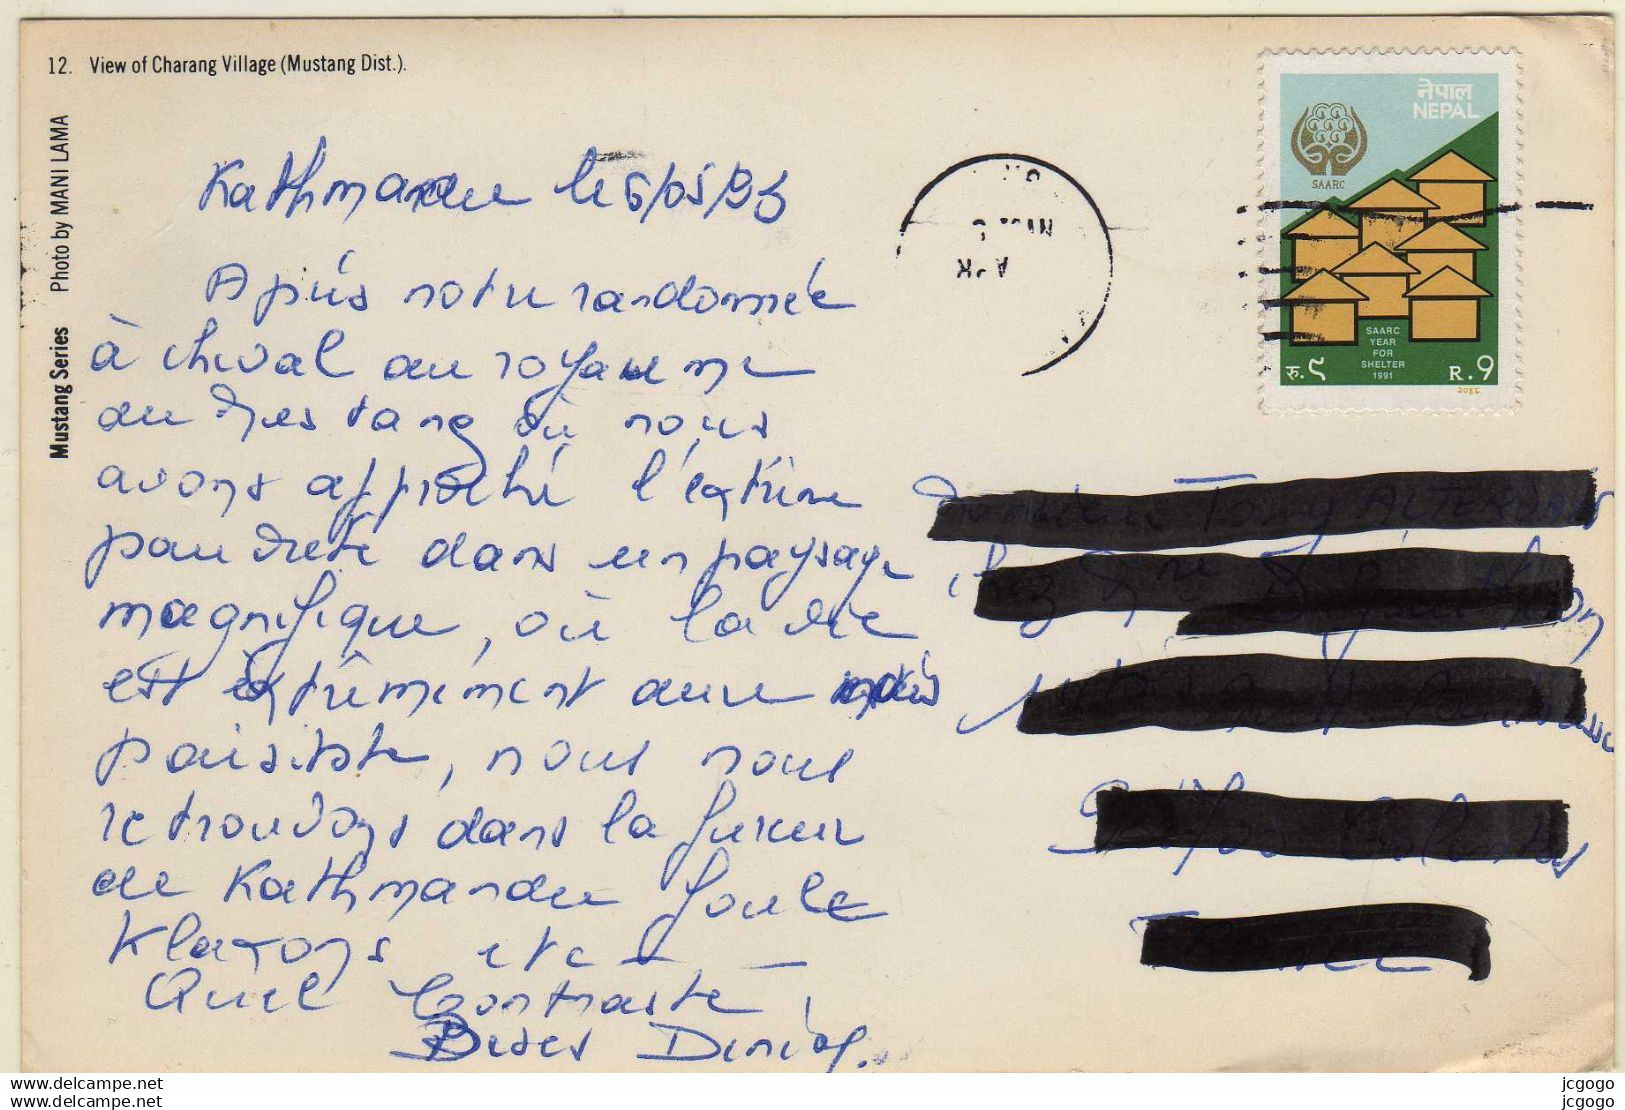 12. View of Charang Village (Mustang Dist.).
Mustang Series Photo by MANI LAMA
नेपाल
NEPAL
SAARC
SAARC
YEAR
FOR
SHELTER
1991
रु. ९
R. 9
Kathmandu le 6/05/93
Après notre randonnée
à cheval au royaume
du Mustang où nous
avons approché l'extrême
pauvreté dans un paysage
magnifique, où la vie
est extrêmement dure mais
paisible, nous nous
retrouvons dans la fureur
de Kathmandu foule
Klaxons etc —
Quel contraste !
Bises
delcampe.net
delcampe.net
jcgogo
jcgogo